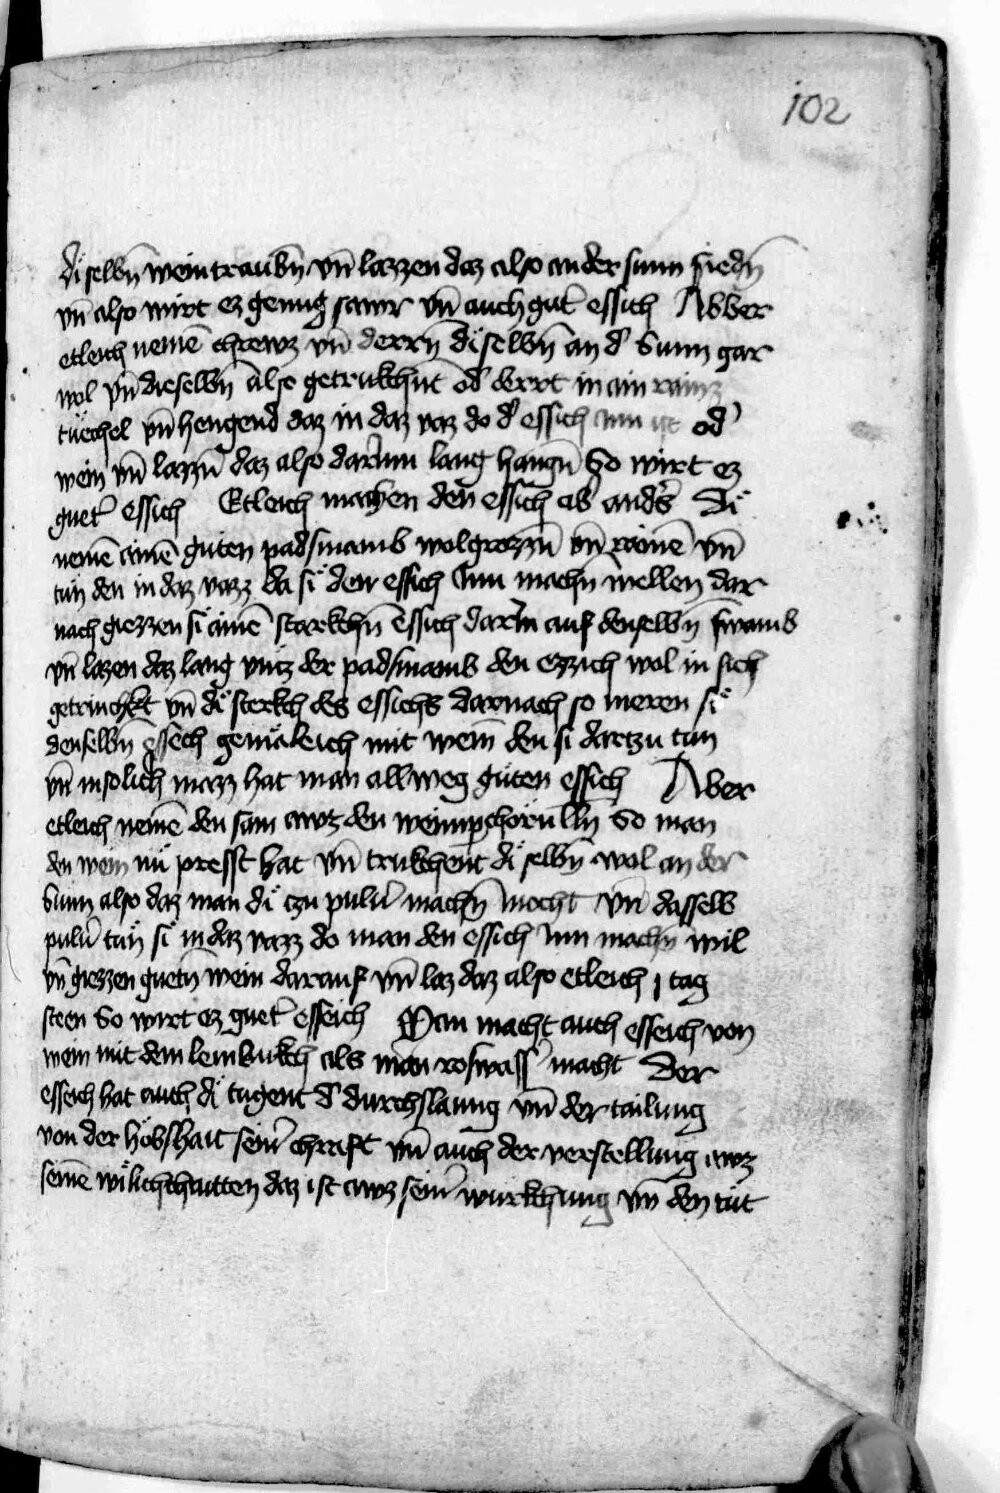 102
di selbn̄ weintraubn̄ vn̄ lazzen daz also an der sunn siedn̄
vn̄ also wirt ez genug sawr vn̄ auch gut̄ essich Abber
etleich nemē chrewz vn̄ derrn̄ di selbn̄ an d' Sunn gar
wol vn̄ dieselbn̄ also getrukchnt od' derrt in ain rainz
tuechel vn̄ hengend daz in daz vaz do d' essich inn ist od'
wein vn̄ lazzn̄ daz also darinn lang hangn̄ So wirt ez
guet̄ essich Etleich machen den essich als and's Di
nemē ainē guten padswamb wolgrozzn̄ vn̄ rainē vn̄
tun den in daz vazz da si den essich Inn machn̄ wellen dar
nach giezzen si ainē starkchn̄ essich darin auf denselbn̄ swamb
vn̄ lazen daz lang vntz der padswamb den ezzich wol in sich
getrinchkt vn̄ di sterkch des essichs darnach so meren si
denselbn̄ essech gemäleich mit wein den si dartzu tun
vn̄ in solich mazz hat man allweg guten essich Aber
etleich nemē den sam awz den weinpchörnlln̄ So man
den wein nu presst hat vn̄ trukchent di selbn̄ wol an der
Sunn also daz man di czu pulu' machn̄ mocht vn̄ dasselb
pulu' tun si in daz vazz do man den essich Inn machn̄ wil
vn̄ giezzen guetn̄ wein darauf vn̄ laz daz also etleich j tag
steen So wirt ez guet̄ esseich Man macht auch esseich von
wein mit dem leinkukch als man roswass' macht Der
esseich hat auch di tugent d' durchslaung vn̄ der tailung
von der hübshait sein' chraft vn̄ auch der verstellung awz
seinē wilichchaitten daz ist awz sein' würkchung vn̄ den tut